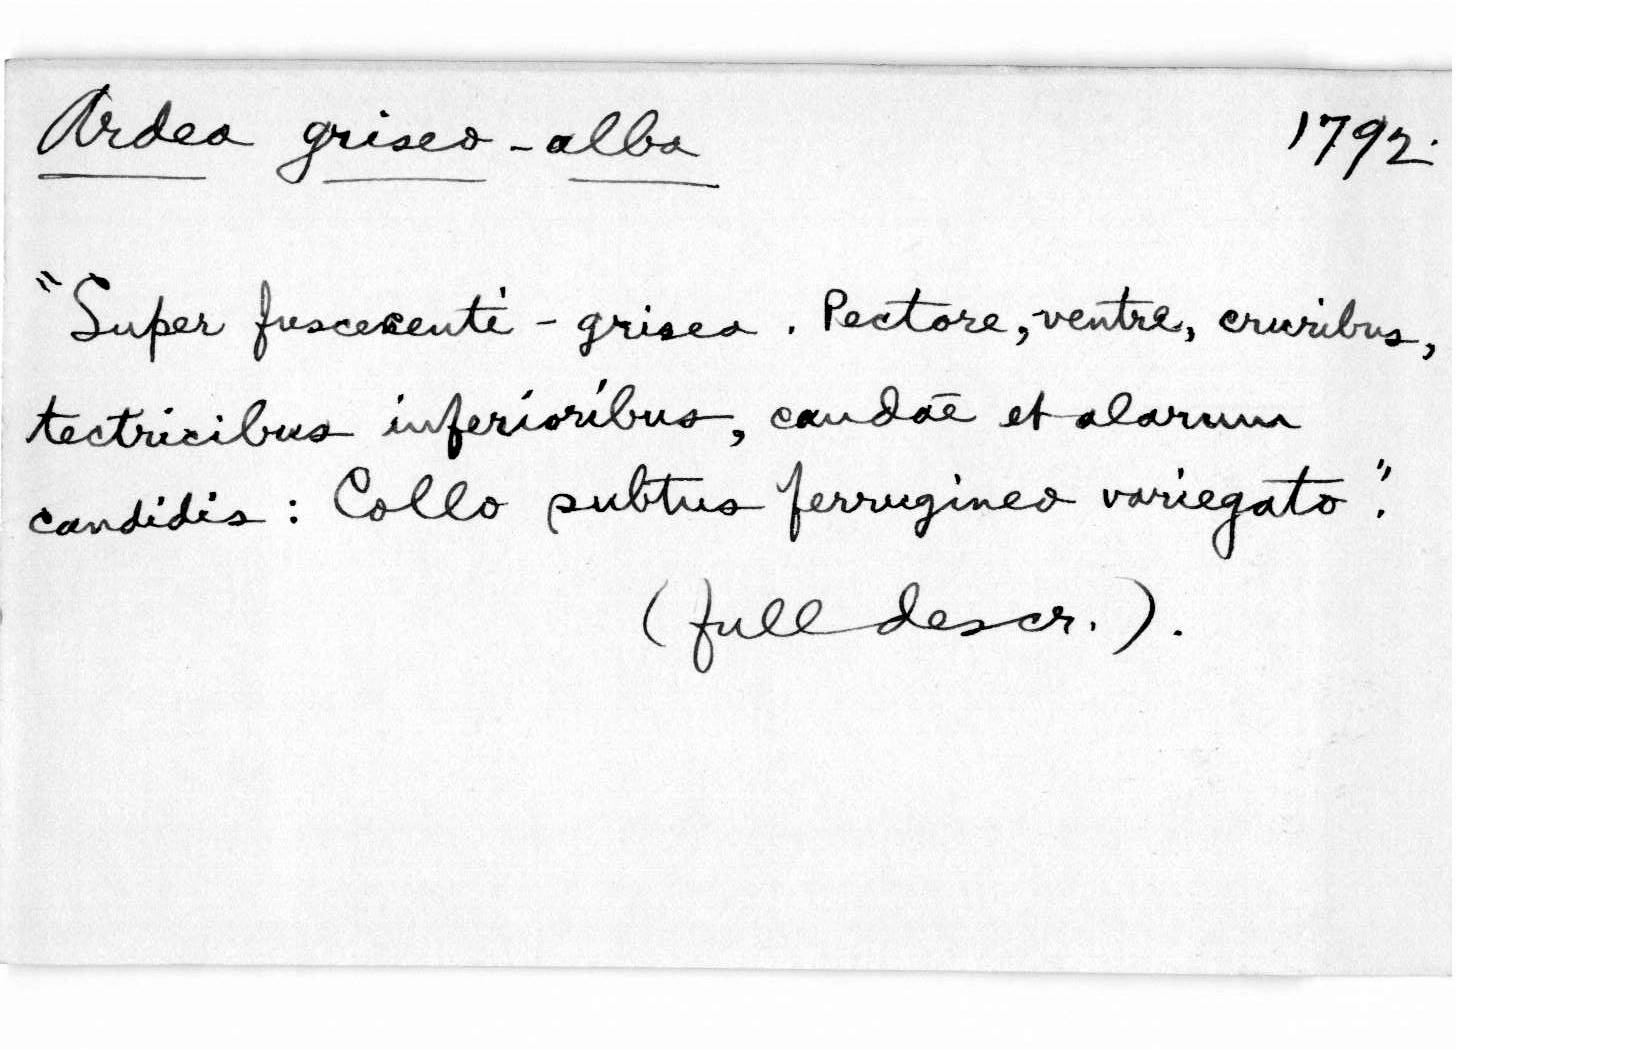 Ardea griseo-alba 1792.
"Super fuscescenti-grisea. Pectore, ventre, cruribus,
tectricibus inferioribus, caudae et alarum
candidis: Collo subtus ferrugineo variegato".
(full descr.).